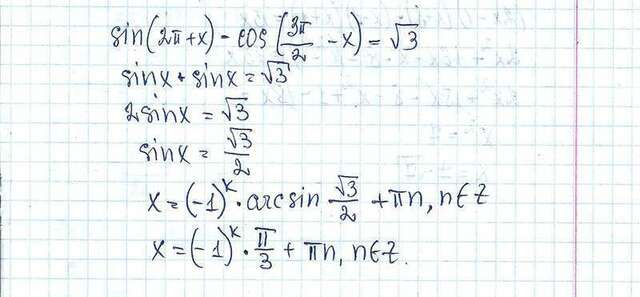 sin(2π+x) - cos(3π/2 - x) = √3
sinx + sinx = √3
2sinx = √3
sinx = √3/2
x = (-1)^k · arcsin √3/2 + πn, n∈Z
x = (-1)^k · π/3 + πn, n∈Z.